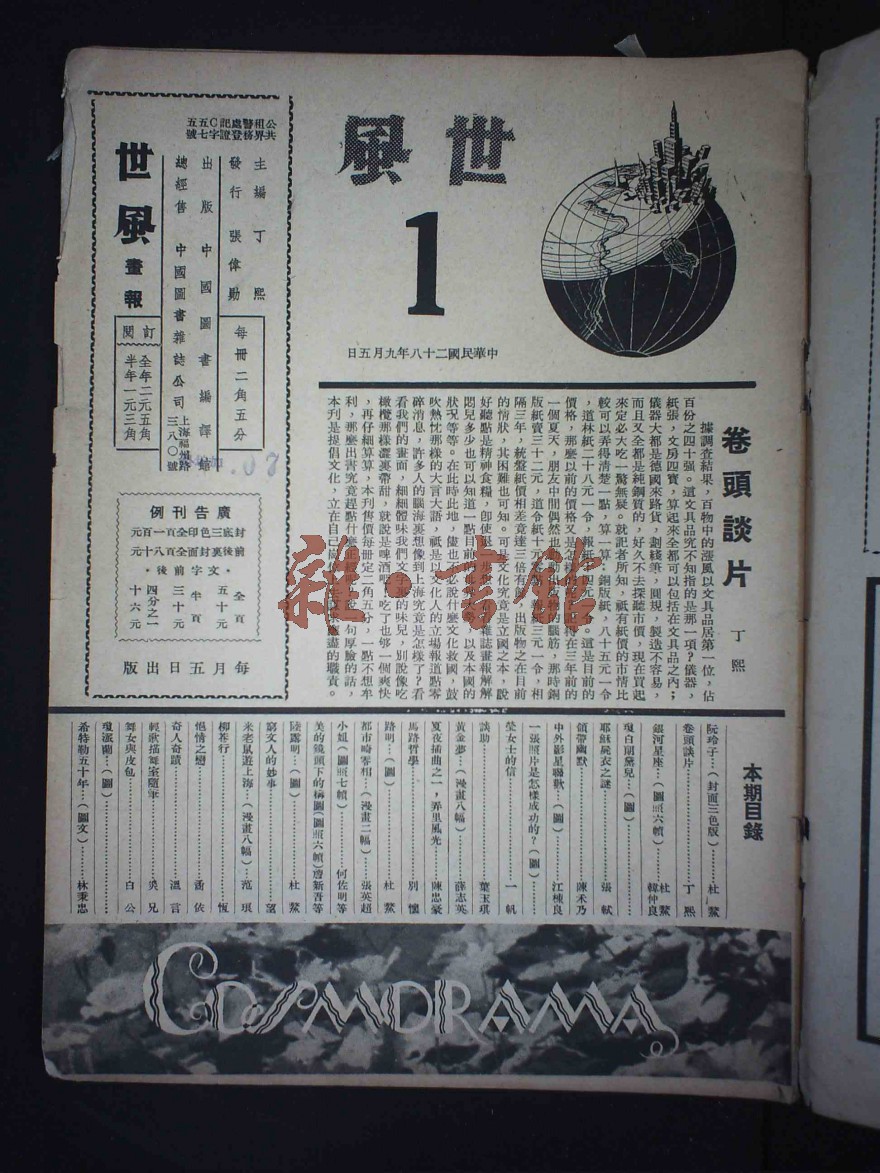 世風
1
中華民國二十八年九月五日
公共租界警務處登記證C字五七五號
世風畫報
主編 丁熙
發行 張偉勛
出版 中國圖書編譯館
總經售 中國圖書雜誌公司
上海福州路三八〇號
每冊二角五分
訂閱
全年二元五角
半年一元三角
廣告刊例
封底三色印全頁一百元
前後裏封面全頁八十元
•文字前後•
全頁五十元
半頁三十元
四分之一十六元
每月五日出版
卷頭談片
丁熙
據調查結果,百物中的漲風以文具品居第一位,佔
百份之四十强。這文具品究不知指的是那一項?儀器,
紙張,文房四寶,算起來全都可以包括在文具品之內;
儀器大都是德國來路貨,劃綫筆,圓規,製造不容易,
而且又全都是純鋼質的,好久不去探聽市價,現在買起
來定必大吃一驚無疑。就記者所知,祇有紙價的市情比
較可以弄得清楚一點,算一算:銅版紙,八十五元一令
,道林紙二十八元一令,報紙十四元一令。這是目前的
價格,那麼以前的價格又是怎樣的呢?記得在三年前的
一個夏天,朋友中間偶然也
版紙賣三十二元,道令紙十元
隔三年,統盤紙價相差竟達三倍有餘,出版物之在目前
的情狀,其困難也可知。可是文化究竟是立國之本,說
好聽點是精神食糧,卽使退一步想,看看雜誌畫報解解
悶兒多少也可以知道一點目前的世界大勢,以及本國的
狀況等等。在此時此地,儘也不必說什麼文化救國,鼓
吹熱忱那樣的大言大語,祇是以文化人的立場報道點零
碎消息,許多人的腦海裏想像到上海究竟是怎樣了?看
看我們的畫面,細細體味我們文字裏的味兒,別說像吃
橄欖那樣澀裏帶甜,就說是啤酒吧,吃了也够一個爽快
,再仔細算算,本刊售價每冊定二角五分,一點不想牟
利,那麼出書究竟趕點什麼正經?說一句厚臉的話,
本刊是提倡文化,立在自己崗位上盡應盡的職責。
本期目錄
阮玲子…(封面三色版)…杜鰲
卷頭談片…丁熙
銀河星座…(圖照六幀)…杜鰲 韓仲良
瓊白閨黛兒…(圖)
耶穌屍衣之謎…張軾
領帶幽默…陳禾乃
中外影星聯歡…(圖)…江棟良
一張照片是怎樣成功的?(圖)
榮女士的信…一帆
談助…葉玉琪
黃金夢…(漫畫八幅)…薛志英
夏夜插曲之一,弄里風光…陳忠豪
馬路哲學…別懷
路明…(圖)…杜鰲
都市畸零相…(漫畫二幅)…張英超
小姐(圖照七幀)…何佐明等
美的鏡頭下的橫圖(圖照六幀)…盧新吾等
陸露明…(圖)…杜鰲
窮文人的妙事…望
米老鼠遊上海…(漫畫八幅)…范琪
柳蓉行…恆
悒情之戀…番依
奇人奇蹟…溫言
輕歌描舞室隨筆…吳兄
舞女與皮包…白公
瓊派蘭…(圖)
希特勒五十年…(圖文)…林秉忠
COSMORAMA
雜·書館